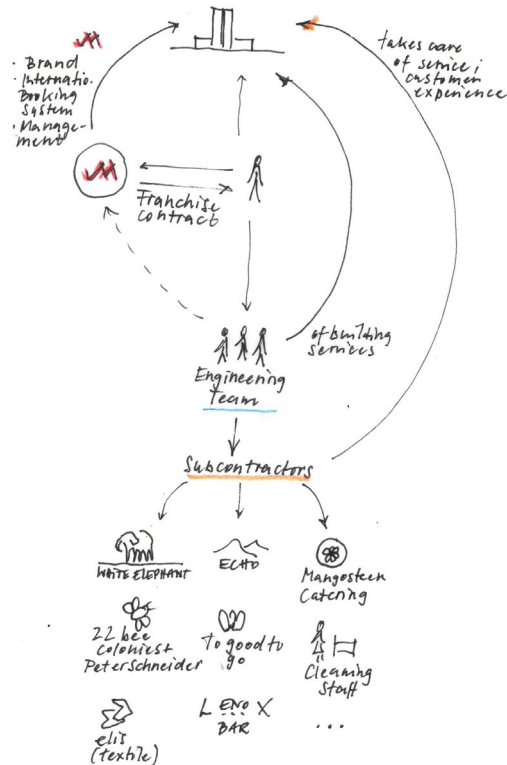 · Brand
· Internatio.
Booking
System
· Manage-
ment
takes care
of service;
customer
experience
Franchise
contract
of building
services
Engineering
Team
Subcontractors
WHITE ELEPHANT
ECHO
Mangosteen
Catering
22 bee
colonies+
Peter Schneider
To good to
go
Cleaning
Staff
elis
(textile)
LENOX
BAR
...